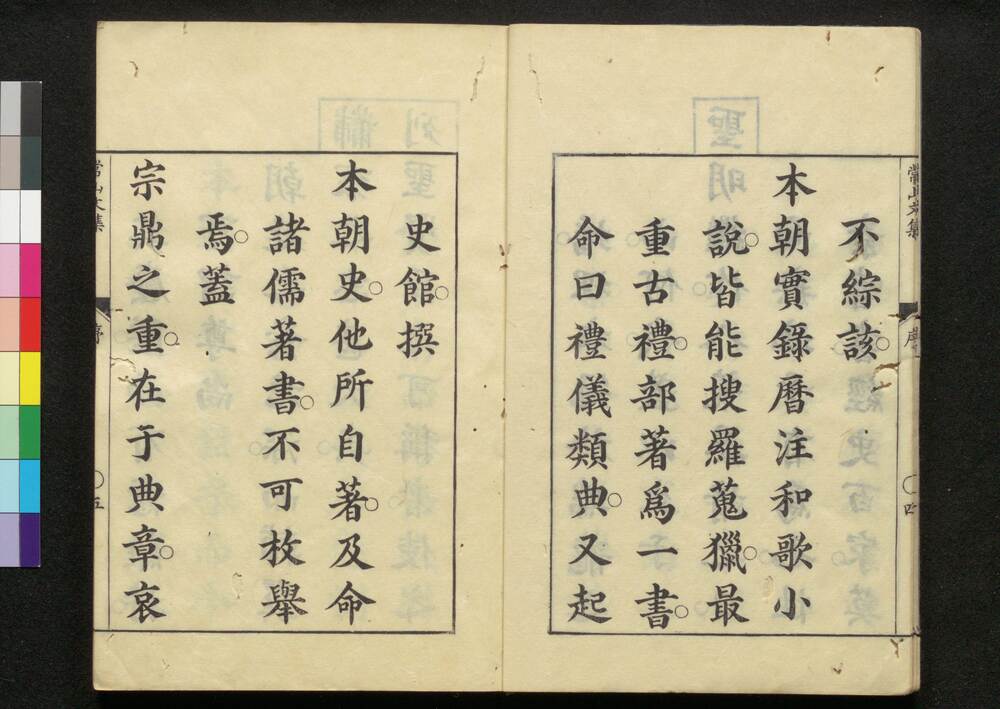 不綜該。
本朝實錄曆注和歌小
說。皆能搜羅蒐獵。最
重古禮。部著爲一書。
命曰禮儀類典。又起
史館。撰
本朝史。他所自著。及命
諸儒著書。不可枚舉
焉。蓋
宗鼎之重。在于典章。哀
常山文集
序
〇四
常山文集
序
〇五